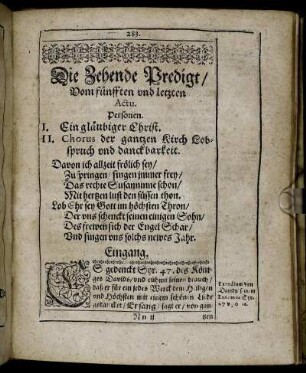 283.
Die Zehende Predigt/
Vom fünfften vnd letzten
Actu.
Personen.
I. Ein gläubiger Christ.
II. Chorus der gantzen Kirch Lob-
spruch vnd danckbarkeit.
Davon ich allzeit frölich sey/
Zu springen/ singen immer frey/
Das rechte Susannine schon/
Mit hertzen lust den süssen thon.
Lob Ehr sey Gott im höchsten Thron/
Der vns schenckt seinen einigen Sohn/
Des frewen sich der Engel Schar/
Vnd singen vns solchs newes Jar.
Eingang.
ES gedenckt Syr. 47. des Kön-
ges Davids/ vnd
daß er für ein jedes Werck dem Heiligen
vnd Höchsten mit einem schönen Liede
gedancket/ Er sang/ sagt er/ von gan-
Nn ij
tzen
Exordium von
Davids
Syr.
47. v. 9. 10.